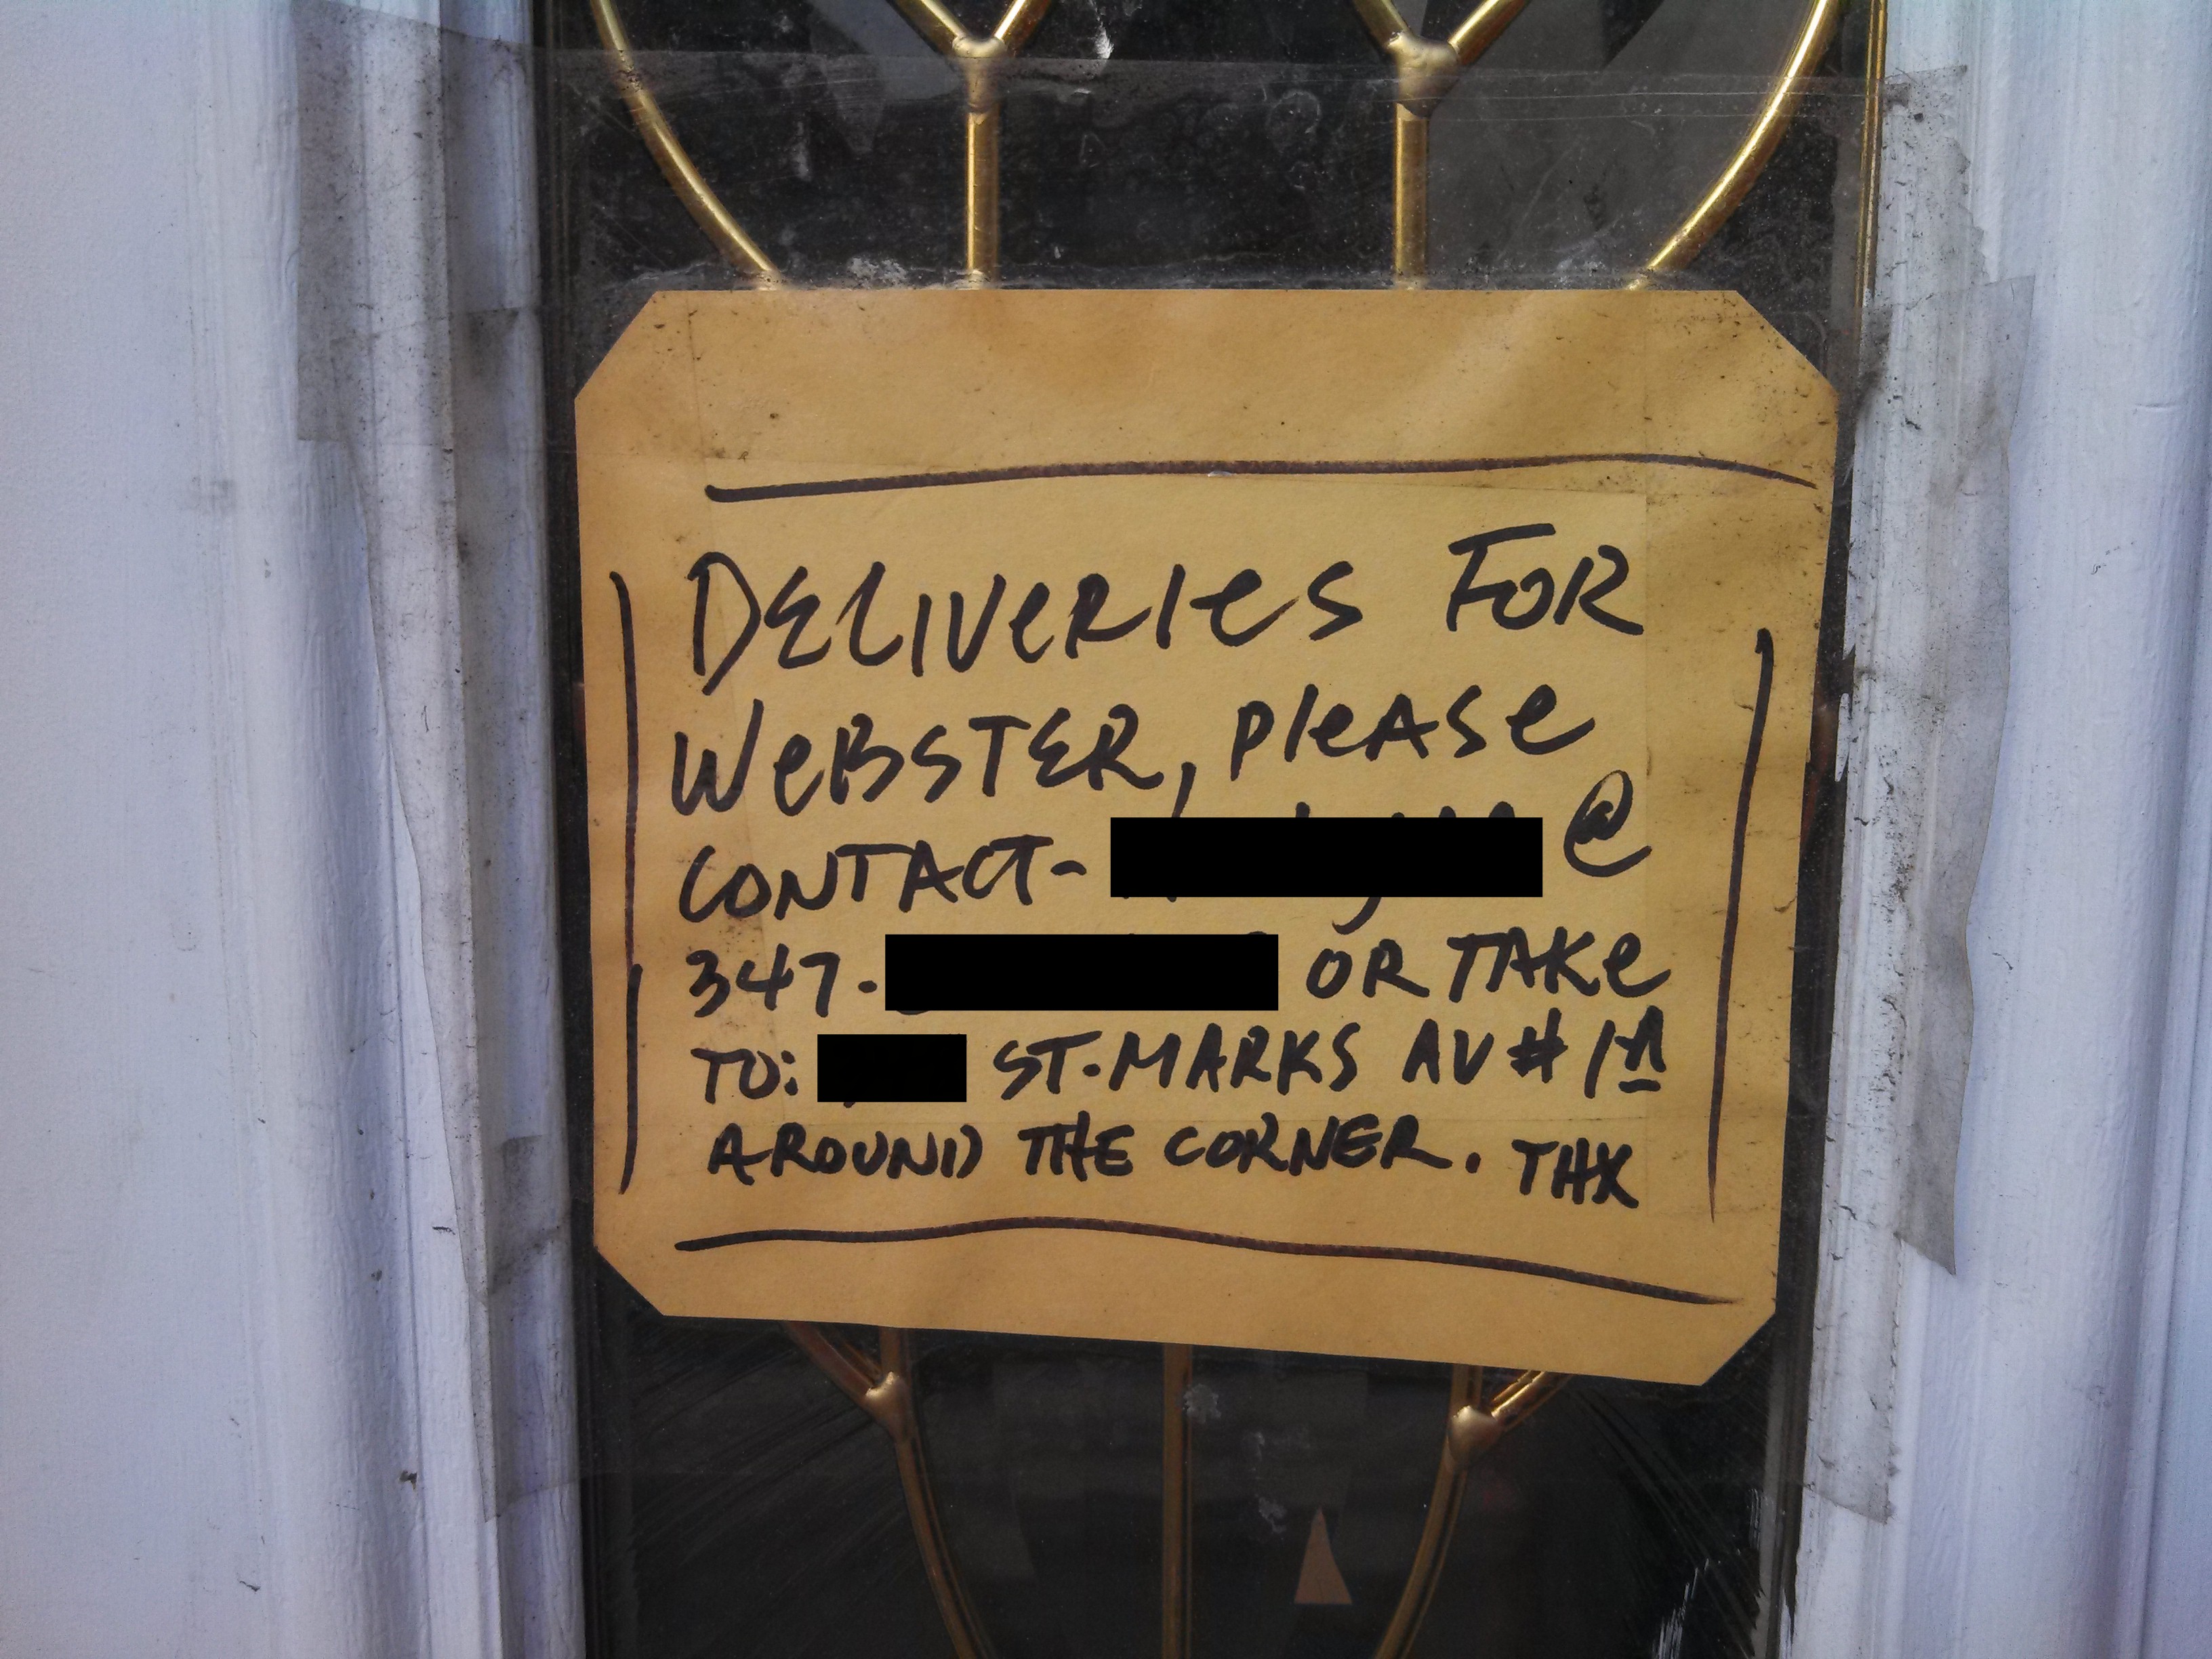 DELIVERIES FOR
WEBSTER, PLEASE
CONTACT- @
347. OR TAKE
TO: ST. MARKS AV #
AROUND THE CORNER. THX